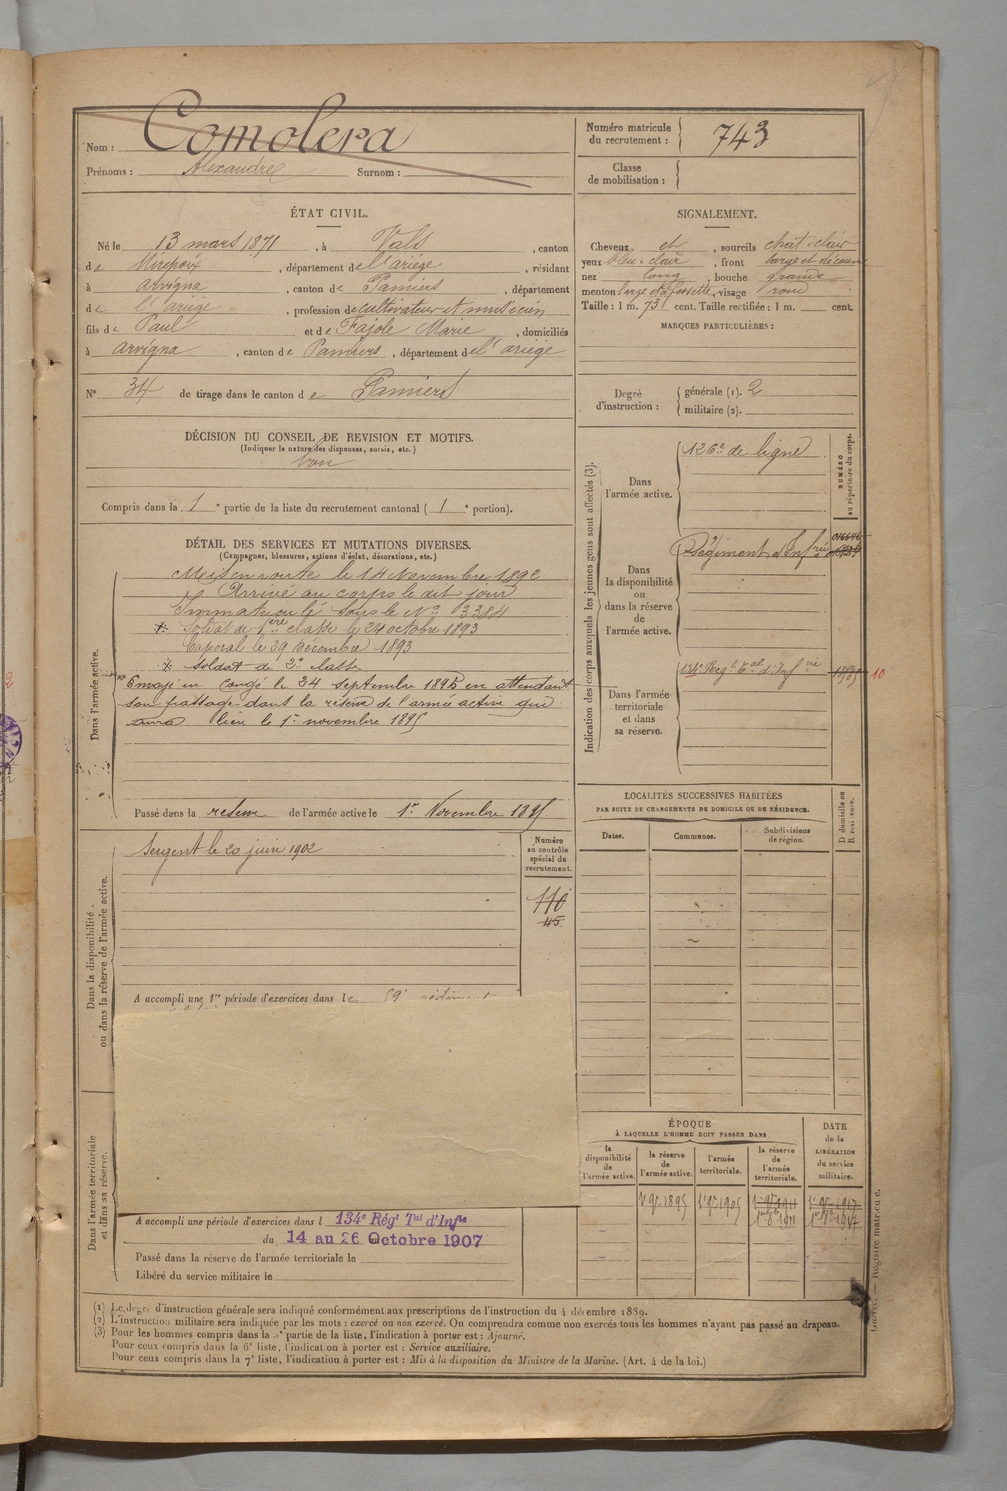 Nom : Comolera
Prénoms : Alexandre Surnom :
Numéro matricule du recrutement : 743
Classe de mobilisation :
ÉTAT CIVIL.
Né le 13 mars 1871, à Vals, canton
de Mirepoix, département de l'ariège, résidant
à arvigna, canton de Pamiers, département
de l'ariège, profession de cultivateur et musicien
fils de Paul et de Fajole Marie, domiciliés
à arvigna, canton de Pamiers, département de l'ariège
N° 34 de tirage dans le canton de Pamiers
SIGNALEMENT.
Cheveux et, sourcils chât-clair
yeux bleu-clair, front large et découv
nez long, bouche grande
menton large et à fossette, visage rond
Taille : 1 m. 73 cent. Taille rectifiée : 1 m. cent.
MARQUES PARTICULIÈRES :
Degré d'instruction : générale (1). 2
militaire (2).
DÉCISION DU CONSEIL DE REVISION ET MOTIFS.
(Indiquer la nature des dispenses, sursis, etc.)
bon
Compris dans la 1e partie de la liste du recrutement cantonal (1e portion).
DÉTAIL DES SERVICES ET MUTATIONS DIVERSES.
(Campagnes, blessures, actions d'éclat, décorations, etc.)
Dans l'armée active.
Mis en route le 14 Novembre 1892
Arrivé au corps le dit jour
Immatriculé sous le N° 3384
Soldat de 1ère classe le 24 octobre 1893
Caporal le 29 Décembre 1893
soldat de 2e classe
Envoyé en congé le 24 septembre 1895 en attendant
son passage dans la réserve de l'armée active qui
aura lieu le 1r novembre 1895
Passé dans la réserve de l'armée active le 1r Novembre 1895
Indication des corps auxquels les jeunes gens sont affectés (3).
NUMÉRO au répertoire du corps.
Dans l'armée active.
126e de ligne
Dans la disponibilité ou dans la réserve de l'armée active.
Régiment d'Infrie
Dans l'armée territoriale et dans sa réserve.
134e Regt Tal d'Infrie
10
Dans la disponibilité ou dans la réserve de l'armée active.
Sergent le 20 juin 1902
Numéro au contrôle spécial du recrutement.
110
45
A accompli une 1re période d'exercices dans le 59e régiment
LOCALITÉS SUCCESSIVES HABITÉES
PAR SUITE DE CHANGEMENTS DE DOMICILE OU DE RÉSIDENCE.
Dates. Communes. Subdivisions de région. D domicile ou R résidence.
ÉPOQUE
À LAQUELLE L'HOMME DOIT PASSER DANS
la disponibilité de l'armée active. la réserve de l'armée active. l'armée territoriale. la réserve de l'armée territoriale.
DATE de la LIBÉRATION du service militaire.
1r 9bre 1895 1r 9bre 1905
Dans l'armée territoriale et dans sa réserve.
A accompli une période d'exercices dans l 134e Régt Tal d'Infie
du 14 au 26 Octobre 1907
Passé dans la réserve de l'armée territoriale le
Libéré du service militaire le
(1) Le degré d'instruction générale sera indiqué conformément aux prescriptions de l'instruction du 4 décembre 1889.
(2) L'instruction militaire sera indiquée par les mots : exercé ou non exercé. On comprendra comme non exercés tous les hommes n'ayant pas passé au drapeau.
(3) Pour les hommes compris dans la 5e partie de la liste, l'indication à porter est : Ajourné.
Pour ceux compris dans la 6e liste, l'indication à porter est : Service auxiliaire.
Pour ceux compris dans la 7e liste, l'indication à porter est : Mis à la disposition du Ministre de la Marine. (Art. 4 de la loi.)
Registre matricule.